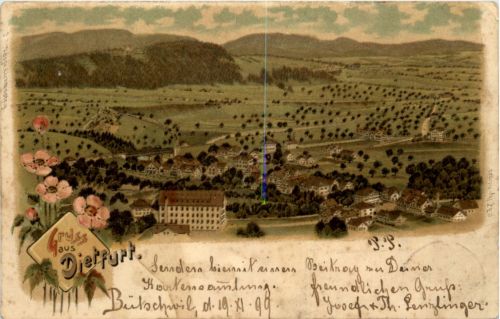 Gruss
aus
Dietfurt.
P. P.
Senden hiemit einen Beitrag zu Deiner
Kartensamlung. freundlichen Gruß:
Bütschwil d. 19. XI 99 Josef & Th.